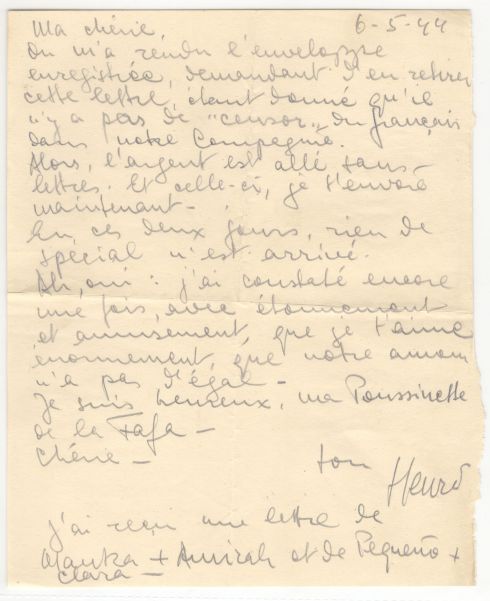 Ma chérie, 6-5-44
On m'a rendu l'enveloppe
enregistrée, demandant d'en retirer
cette lettre, étant donné qu'il
n'y a pas de "censor" du français
dans notre Compagnie.
Alors, l'argent est allé sans
lettres. Et celle-ci, je t'envoie
maintenant-
En ces deux jours, rien de
special n'est arrivé.
Ah, oui : j'ai constaté encore
une fois, avec étonnement
et amusement, que je t'aime
énormement, que notre amour
n'a pas d'égal -
Je suis heureux, ma Poussinette
de la Fafa -
Chérie -
ton
J'ai reçu une lettre de
+ Amirah et de Pequeño +
Clara -